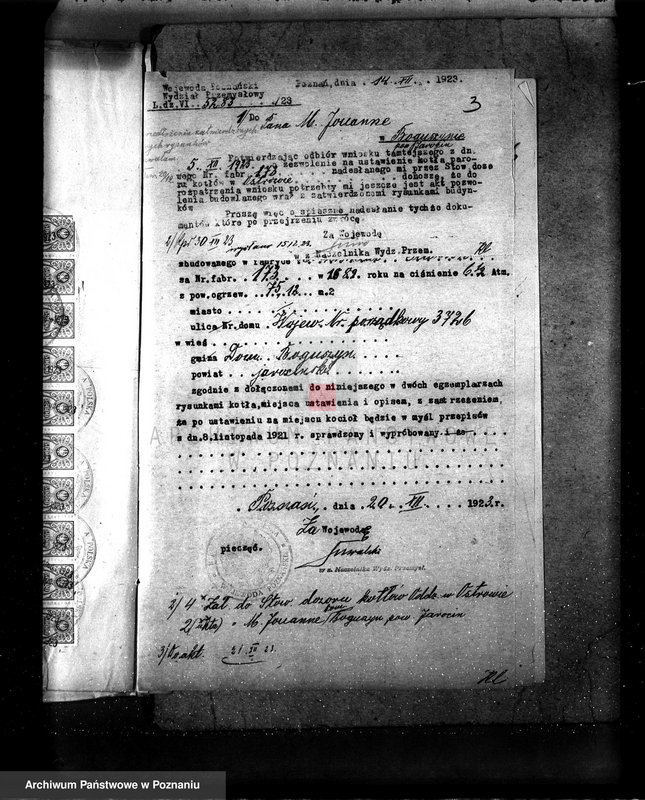 Wojewoda Poznański
Wydział Przemysłowy
L.dz.VI. 5283 /23
Poznań, dnia 14. XII. 1923.
3
1/ Do Pana M. Jouanne
w Boguszynie
pow Jarocin
Potwierdzając odbiór wniosku tamtejszego z dn.
5. XII 1923 zezwolenie na ustawienie kotła paro-
wego Nr. fabr. 173 nadesłanego mi przez Stow. dozo
ru kotłów w Ostrowie donoszę, że do
rozpatrzenia wniosku potrzebny mi jeszcze jest akt pozwo-
lenia budowlanego wraz z zatwierdzonemi rysunkami budyn-
ków
Proszę więc o spieszne nadesłanie tychże doku-
mentów które po przejrzeniu zwrócę.
Za Wojewodę
2/ 30 XII 23
w z Naczelnika Wydz. Przem.
zbudowanego w fabryce
za Nr.fabr. 173 w 1889. roku na ciśnienie 6 1/2 Atm.
z pow.ogrzew. 75,18 m.2
miasto
ulica Nr.domu Wojew. Nr. porządkowy 3726
w wieś
gmina Dom. Boguszyn
powiat jarociński
zgodnie z dołączonemi do niniejszego w dwóch egzemplarzach
rysunkami kotła, miejsca ustawienia i opisem, z zastrzeżeniem,
że po ustawieniu na miejscu kocioł będzie w myśl przepisów
z dn.8.listopada 1921 r. sprawdzony i wypróbowany
W POZNANIU
Poznań, dnia 20. XII. 1923.r.
Za Wojewodę
pieczęć.
w z. Naczelnika Wydz. Przemysł.
2/ 4 x Zał. do Stow. dozoru kotłów Oddz. w Ostrowie
2 (zkł) " M. Jouanne Boguszyn pow Jarocin
3/ Do akt.
21 XII 23.
Archiwum Państwowe w Poznaniu